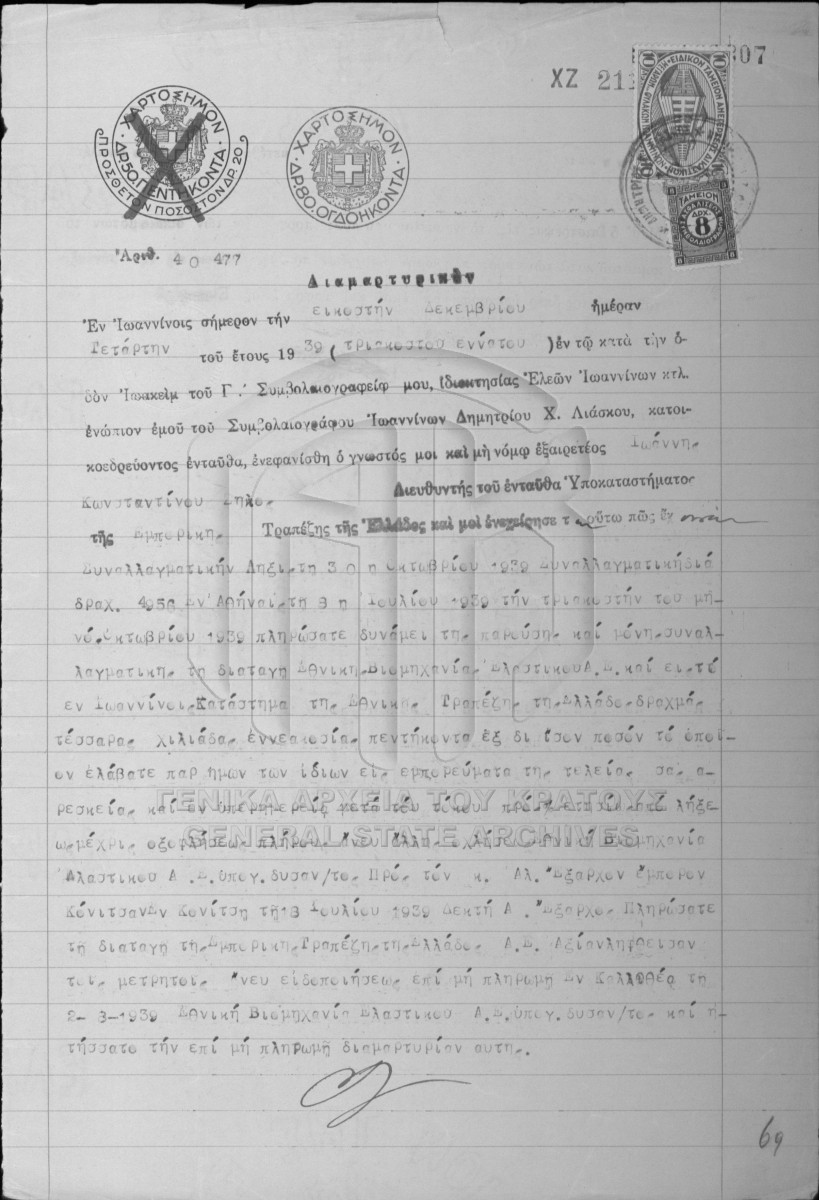 ΧΖ 21 307
ΧΑΡΤΟΣΗΜΟΝ
ΔΡ.50.ΠΕΝΤΗΚΟΝΤΑ
ΠΡΟΣΘΕΤΟΝ ΠΟΣΟΣΤΟΝ ΔΡ. 20
ΧΑΡΤΟΣΗΜΟΝ
ΔΡ.80.ΟΓΔΟΗΚΟΝΤΑ
ΤΑΜΕΙΟΝ
ΔΡΧ.
8
Ἀριθ. 40 477
Διαμαρτυρικὸν
Ἐν Ἰωαννίνοις σήμερον τὴν εικοστήν Δεκεμβρίου ἡμέραν
Τετάρτην τοῦ ἔτους 19 39 ( τριακοστου εννάτου ) ἐν τῷ κατὰ τὴν ὁ-
δὸν Ἰωακεὶμ τοῦ Γ.´ Συμβολαιογραφείῳ μου, ἰδιοκτησίας Ἐλεῶν Ἰωαννίνων κτλ.
ἐνώπιον ἐμοῦ τοῦ Συμβολαιογράφου Ἰωαννίνων Δημητρίου Χ. Λιάσκου, κατοι-
κοεδρεύοντος ἐνταῦθα, ἐνεφανίσθη ὁ γνωστός μοι καὶ μὴ νόμῳ ἐξαιρετέος Ιωάννη.
Κωνσταντίνου Διευθυντής τοῦ ἐνταῦθα Ὑποκαταστήματος
τῆς Εμπορικη. Τραπέζης τῆς Ἑλλάδος καὶ μοὶ ἐνεχείρησε τ ούτω πῶς ἔχ
Συναλλαγματικήν Ληξι.τη 30 η Οκτωβρίου 1939 Συναλλαγματικήδιά
δραχ. 4956 Εν Αθήναι.τη 3 η Ιουλίου 1939 τήν τριακοστήν του μη-
νό.Οκτωβρίου 1939 πληρώσατε δυνάμει τη. παρούση. καί μόνη.συναλ-
λαγματικη. τη διαταγη Εθνικη.Βιομηχανία. Ελαστικου Α.Ε. καί ει.τό
εν Ιωαννίνοι.Κατάστημα τη. Εθνικη. Τραπέζη. τη.Ελλάδο.δραχμά.
τέσσαρα. χιλιάδα. εννεακοσία. πεντήκοντα έξ δι ίσον ποσόν τό οποι-
ον ελάβατε παρ ημων των ίδιων ει. εμπορεύματα τη. τελεία. σα. α-
ρεσκεία. καί εν υπερημερεία μετά του τόκου
ω.μέχρι. εξοφλήσεω. πλήρου. Βιομηχανία
Ελαστικου Α .Ε.υπογ.δυσαν/το. Πρό. τόν κ. Αλ. Εξαρχον Εμπορον
Κόνιτσαν Εν Κονίτση τη 13 Ιουλίου 1939 Δεκτή Α . Εξαρχο. Πληρώσατε
τη διαταγη τη.Εμπορικη.Τραπέζη.τη.Ελλάδο. Α.Ε. Αξίανληφθεισαν
τοι. μετρητοι. Ανευ ειδοποιήσεω. επί μή πληρωμη Εν Καλλιθέα τη
2- 3-1939 Εθνική Βιομηχανία Ελαστικου Α.Ε.υπογ.δυσαν/το. καί η-
τήσσατο τήν επί μή πληρωμη διαμαρτυρίαν αυτη..
ΓΕΝΙΚΑ ΑΡΧΕΙΑ ΤΟΥ ΚΡΑΤΟΥΣ
GENERAL STATE ARCHIVES
69